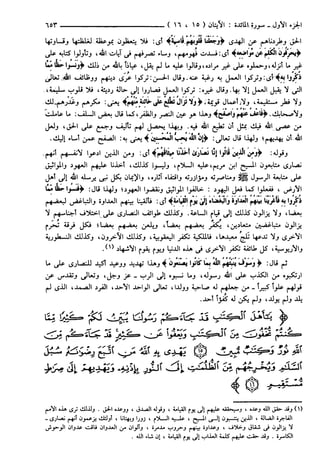 الجزء الأول - سورة المائدة : الآيتان (١٥ ، ١٦)
٦٥٣
الحق وطردناهم عن الهدى ﴿وَجَعَلْنَا قُلُوبَهُمْ قَاسِيَةً﴾ أي: فلا يتعظون بموعظة لغلظتها وقساوتها
﴿يُحَرِّفُونَ الْكَلِمَ عَن مَّوَاضِعِهِ﴾ أي: فسدت فهومهم، وساء تصرفهم في آيات الله، وتأولوا كتابه على
غير ما أنزله، وحملوه على غير مراده، وقالوا عليه ما لم يقل، عياذاً بالله من ذلك ﴿وَنَسُوا حَظًّا مِّمَّا
ذُكِّرُوا بِهِ﴾ أي: وتركوا العمل به رغبة عنه. وقال الحسن: تركوا عُرى دينهم ووظائف الله تعالى
التي لا يقبل العمل إلا بها. وقال غيره: تركوا العمل فصاروا إلى حالة رديئة، فلا قلوب سليمة،
ولا فطر مستقيمة، ولا أعمال قويمة. ﴿وَلَا تَزَالُ تَطَّلِعُ عَلَىٰ خَائِنَةٍ مِّنْهُمْ﴾ يعني: مكرهم وغدرهم لك
ولأصحابك. ﴿فَاعْفُ عَنْهُمْ وَاصْفَحْ﴾ وهذا هو عين النصر والظفر، كما قال بعض السلف: ما عاملت
من عصى الله فيك بمثل أن تطيع الله فيه. وبهذا يحصل لهم تأليف وجمع على الحق، ولعل
الله أن يهديهم؛ ولهذا قال تعالى: ﴿إِنَّ اللَّهَ يُحِبُّ الْمُحْسِنِينَ﴾ يعني به: الصفح عمن أساء إليك.
وقوله: ﴿وَمِنَ الَّذِينَ قَالُوا إِنَّا نَصَارَىٰ أَخَذْنَا مِيثَاقَهُمْ﴾ أي: ومن الذين ادعوا لأنفسهم أنهم
نصارى متابعون المسيح ابن مريم عليه السلام، وليسوا كذلك، أخذنا عليهم العهود والمواثيق
على متابعة الرسول ﷺ ومناصرته ومؤازرته واقتفاء آثاره، والإيمان بكل نبي يرسله الله إلى أهل
الأرض، ففعلوا كما فعل اليهود: خالفوا المواثيق ونقضوا العهود؛ ولهذا قال: ﴿فَنَسُوا حَظًّا مِّمَّا
ذُكِّرُوا بِهِ فَأَغْرَيْنَا بَيْنَهُمُ الْعَدَاوَةَ وَالْبَغْضَاءَ إِلَىٰ يَوْمِ الْقِيَامَةِ﴾ أي: فألقينا بينهم العداوة والتباغض لبعضهم
بعضا، ولا يزالون كذلك إلى قيام الساعة. وكذلك طوائف النصارى على اختلاف أجناسهم لا
يزالون متباغضين متعادين، يُكفّر بعضهم بعضاً، ويلعن بعضهم بعضا؛ فكل فرقة تُحرم
الأخرى ولا تدعها تَلجُ معبدها، فالملكية تكفر اليعقوبية، وكذلك الآخرون، وكذلك النسطورية
والآريوسية، كل طائفة تكفر الأخرى في هذه الدنيا ويوم يقوم الأشهاد (١).
ثم قال: ﴿وَسَوْفَ يُنَبِّئُهُمُ اللَّهُ بِمَا كَانُوا يَصْنَعُونَ﴾ وهذا تهديد ووعيد أكيد للنصارى على ما
ارتكبوه من الكذب على الله ورسوله، وما نسبوه إلى الرب - عز وجل، وتعالى وتقدس عن
قولهم علواً كبيراً - من جعلهم له صاحبة وولدا، تعالى الواحد الأحد، الفرد الصمد، الذي لم
يلد ولم يولد، ولم يكن له كُفُواً أحد.
﴿يَا أَهْلَ الْكِتَابِ قَدْ جَاءَكُمْ رَسُولُنَا يُبَيِّنُ لَكُمْ كَثِيرًا
مِّمَّا كُنتُمْ تُخْفُونَ مِنَ الْكِتَابِ وَيَعْفُو عَن كَثِيرٍ قَدْ
جَاءَكُم مِّنَ اللَّهِ نُورٌ وَكِتَابٌ مُّبِينٌ ۝ يَهْدِي بِهِ اللَّهُ مَنِ
اتَّبَعَ رِضْوَانَهُ سُبُلَ السَّلَامِ وَيُخْرِجُهُم مِّنَ الظُّلُمَاتِ
إِلَى النُّورِ بِإِذْنِهِ وَيَهْدِيهِمْ إِلَىٰ صِرَاطٍ
مُّسْتَقِيمٍ
(١) وقد حقق الله وعده ، وسيحققه عليهم إلى يوم القيامة ، وقوله الصدق ، ووعده الحق . وكذلك نرى هذه الأمم
الفاجرة الضالة ، الذين ينتسبون إلى المسيح ، عليه السلام ، زورا وبهتانا ، أولئك يزعمون أنهم نصارى -
لا يزالون في شقاق وخلاف ، وعداوة بينهم وحروب مدمرة ، وألوان من العدوان فاقت عدوان الوحوش
الكاسرة . وقد حقت عليهم كلمة العذاب إلى يوم القيامة ، إن شاء الله .